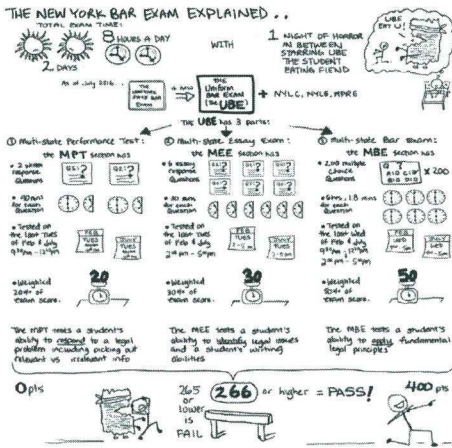 THE NEW YORK BAR EXAM EXPLAINED..
TOTAL EXAM TIME:
8 HOURS A DAY
2 DAYS
WITH
1 NIGHT OF HORROR
IN BETWEEN
STARRING UBE
THE STUDENT
EATING FIEND
UBE
EAT U!
As of July 2016...
is now
THE
Uniform
BAR EXAM
(the UBE)
+ NYLC, NYLE, MPRE
The UBE has 3 parts:
① Multi-state Performance Test:
the MPT section has
• 2 written
response
Questions
Q1:?
Q2:?
• 90 mins
for each
Question
• Tested on
the last Tues
of Feb & July
FEB
TUES
JULY
TUES
• Weighted
20% of
exam score.
20
The MPT tests a student's
ability to respond to a legal
problem including picking out
relevant vs irrelevant info
② Multi-state Essay Exam:
the MEE section has
• 6 essay
response
Questions
• 30 mins
for each
Question
• Tested on
the last Tues
of Feb & July
2:00 pm - 5:00 pm
FEB
TUES
2-5 pm
• Weighted
30% of
exam score.
30
The MEE tests a student's
ability to identify legal issues
and a student's writing
abilities
③ Multi-state Bar Exam:
the MBE section has
• 200 multiple
choice
Questions
x 200
• 6 hrs, 1.8 mins
for each
Question
• Tested on
the last Wed
of Feb & July
FEB
WED
JULY
WED
• Weighted
50% of
exam score.
50
The MBE tests a student's
ability to apply fundamental
legal principles
0 pts
265
or
lower
is
FAIL
266 or higher = PASS!
400 pts